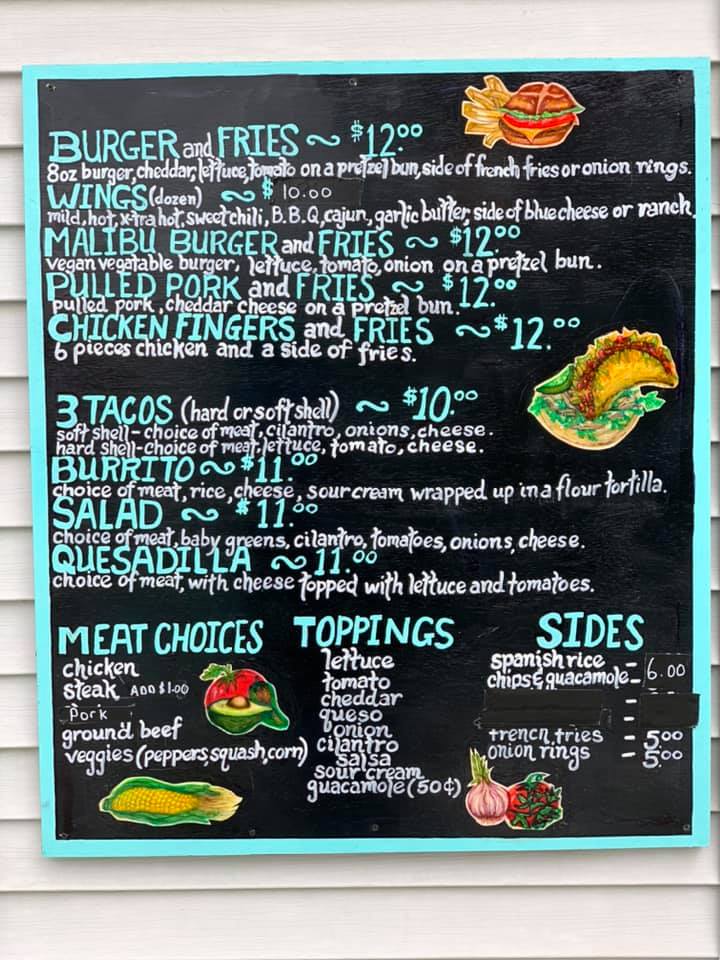 BURGER and FRIES ~ $12.00
8oz burger, cheddar, lettuce, tomato on a pretzel bun, side of french fries or onion rings.
WINGS (dozen) ~ $ 10.00
mild, hot, x-tra hot, sweet chili, B.B.Q, cajun, garlic butter, side of blue cheese or ranch
MALIBU BURGER and FRIES ~ $12.00
vegan vegatable burger, lettuce, tomato, onion on a pretzel bun.
PULLED PORK and FRIES ~ $12.00
pulled pork, cheddar cheese on a pretzel bun.
CHICKEN FINGERS and FRIES ~ $12.00
6 pieces chicken and a side of fries.
3 TACOS (hard or soft shell) ~ $10.00
soft shell - choice of meat, cilantro, onions, cheese.
hard shell - choice of meat, lettuce, tomato, cheese.
BURRITO ~ $11.00
choice of meat, rice, cheese, sour cream wrapped up in a flour tortilla.
SALAD ~ $11.00
choice of meat, baby greens, cilantro, tomatoes, onions, cheese.
QUESADILLA ~ 11.00
choice of meat, with cheese topped with lettuce and tomatoes.
MEAT CHOICES
chicken
steak ADD $1.00
Pork
ground beef
veggies (peppers, squash, corn)
TOPPINGS
lettuce
tomato
cheddar
queso
onion
cilantro
salsa
sour cream
guacamole (50¢)
SIDES
spanish rice -
chips & guacamole - 6.00
-
-
french fries - 5.00
onion rings - 5.00